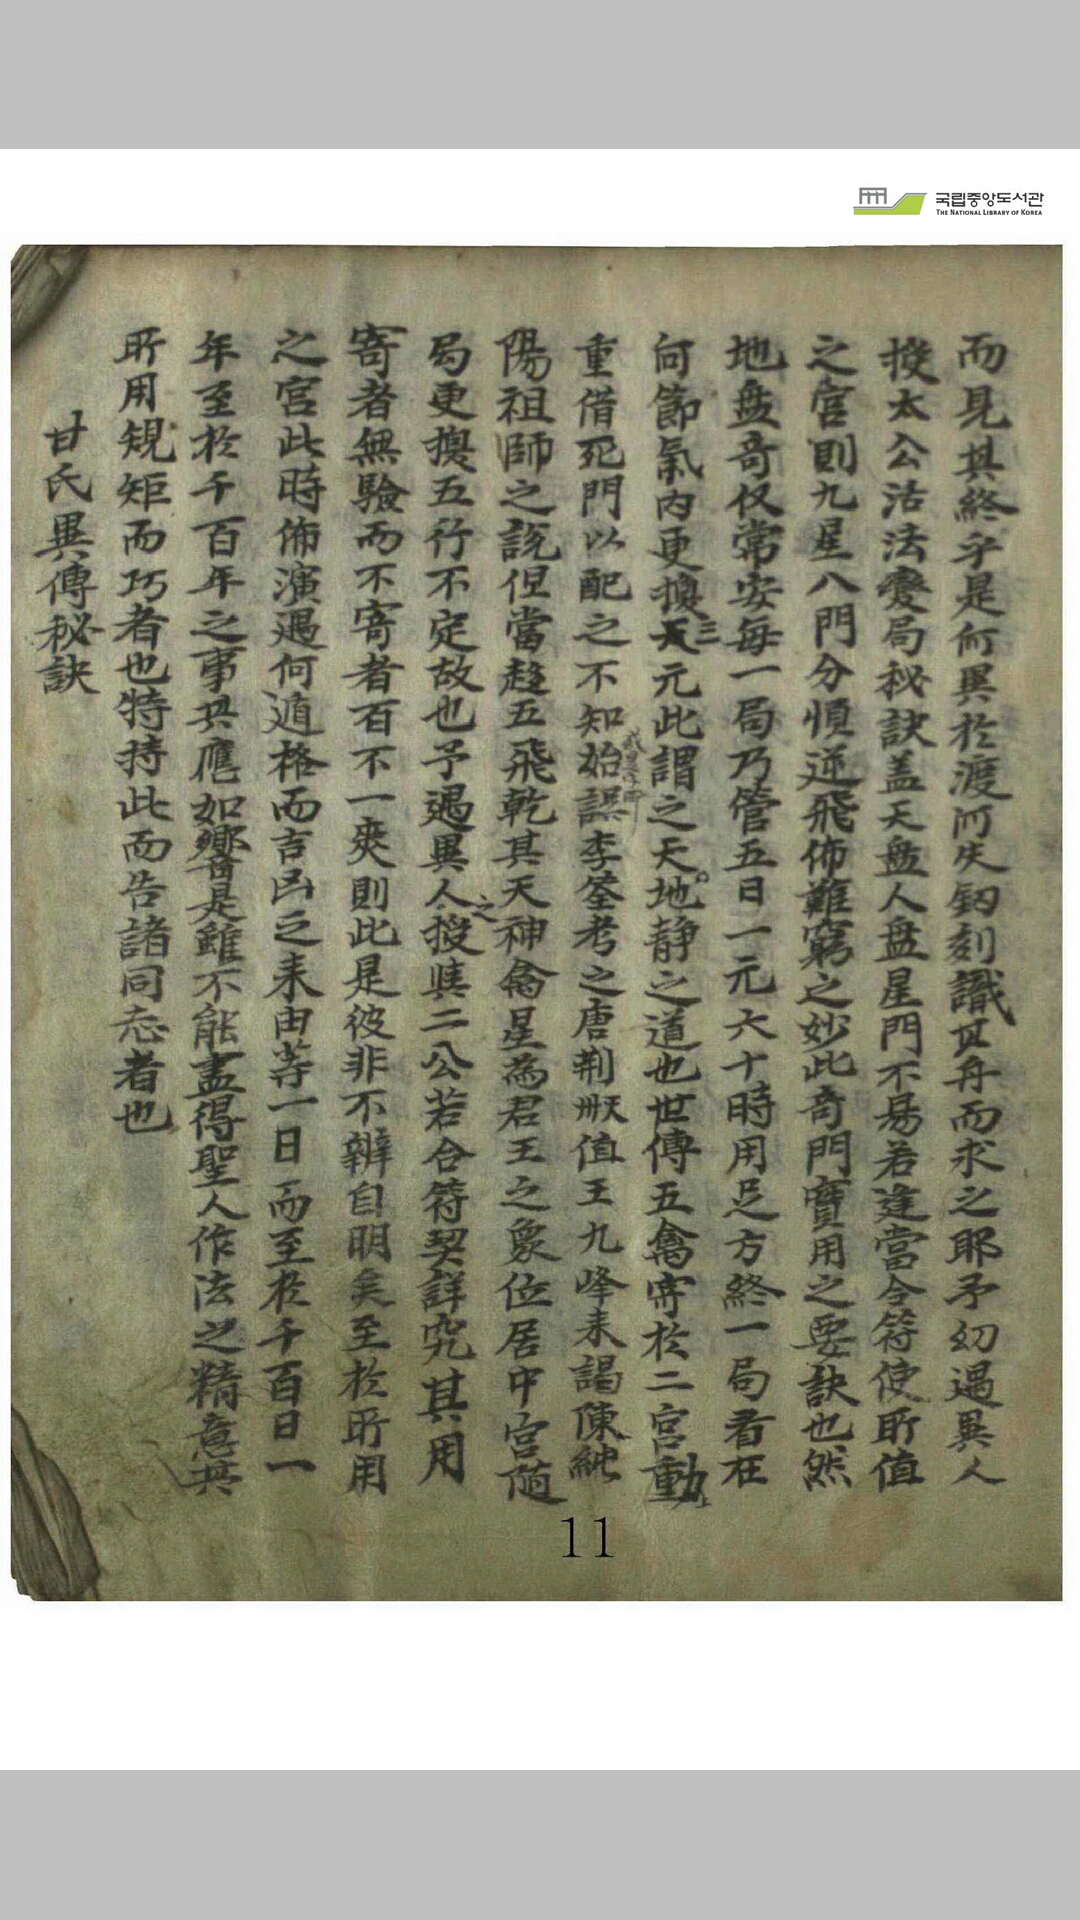 국립중앙도서관
THE NATIONAL LIBRARY OF KOREA
而見其終乎是何異於渡河失釰刻識其舟而求之耶予幼遇異人
授太公活法變局秘訣盖天盘人盘星門不易若逢當令符使所值
之宮則九星八門分順逆飛佈難窮之妙此奇門實用之要訣也然
地盘奇仪常安每一局乃管五日一元六十時用足方終一局看在
何節氣內更換三元此謂之天地静之道也世傳五禽寄於二宮動
重借死門以配之不知始誤李筌考之唐荆州天值王九峰来謁陳
陽祖師之説但當趂五飛乾其天神禽星為君王之象位居中宮随
局更換五行不定故也予遇異人之授與二公若合符契詳究其用
寄者無驗而不寄者百不一爽則此是彼非不辨自明矣至於所用
之宮此時佈演遇何遁格而言凶之来由等一日而至於千百日一
年至於千百年之事其應如響是雖不能盡得聖人作法之精意其
所用䂓矩而巧者也特持此而告諸同志者也
甘氏異傳秘訣
11